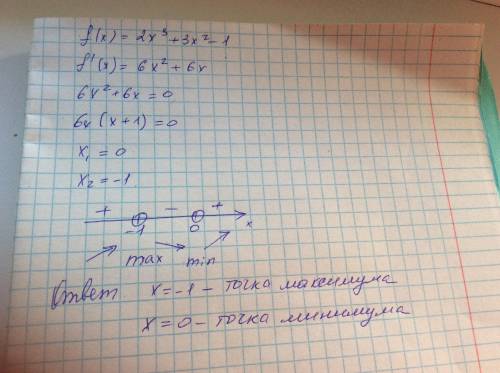 f(x) = 2x³ + 3x² - 1
f'(x) = 6x² + 6x
6x² + 6x = 0
6x (x + 1) = 0
x₁ = 0
x₂ = -1
+ - +
-1 0 x
max min
Ответ x = -1 - точка максимума
x = 0 - точка минимума